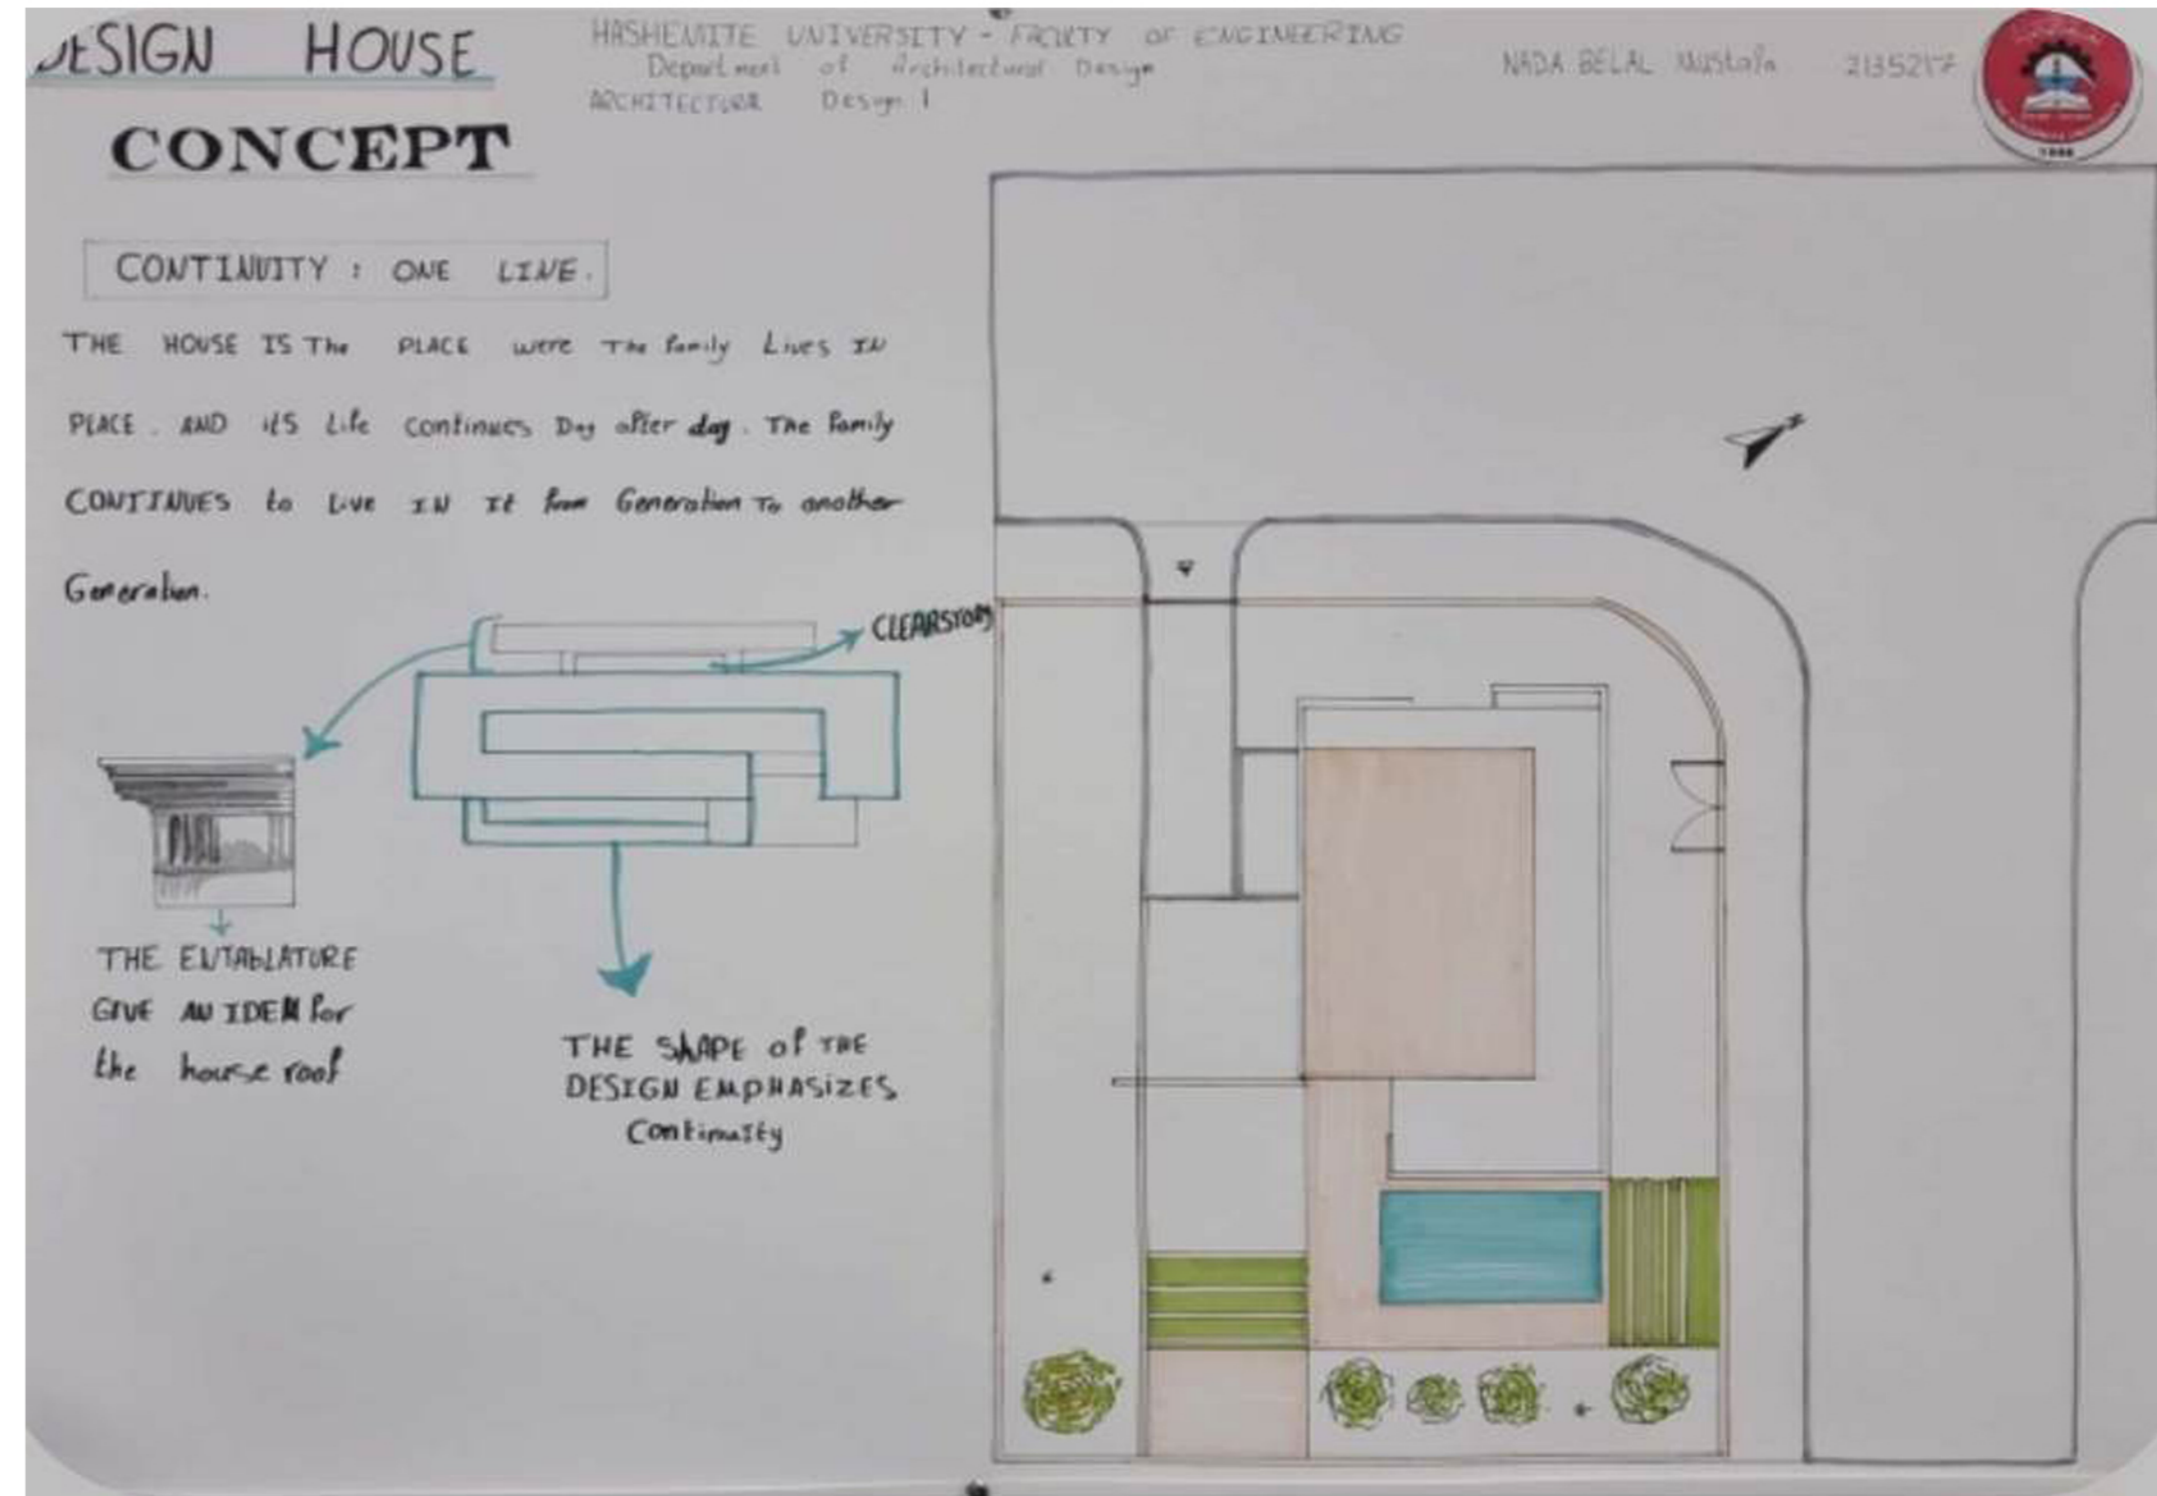 DESIGN HOUSE
HASHEMITE UNIVERSITY - FACULTY OF ENGINEERING
Department of Architectural Design
ARCHITECTURE Design 1
NADA BELAL Mustafa 2135217
CONCEPT
CONTINUITY : ONE LINE.
THE HOUSE IS The PLACE were The family Lives IN
PLACE . AND its Life continues Day after day . The family
CONTINUES to Live IN It from Generation To another
Generation.
CLEARSTORY
THE ENTAbLATURE
GIVE AN IDEA for
the house roof
THE ShAPE of THE
DESIGN EMPHASiZES
Continuity